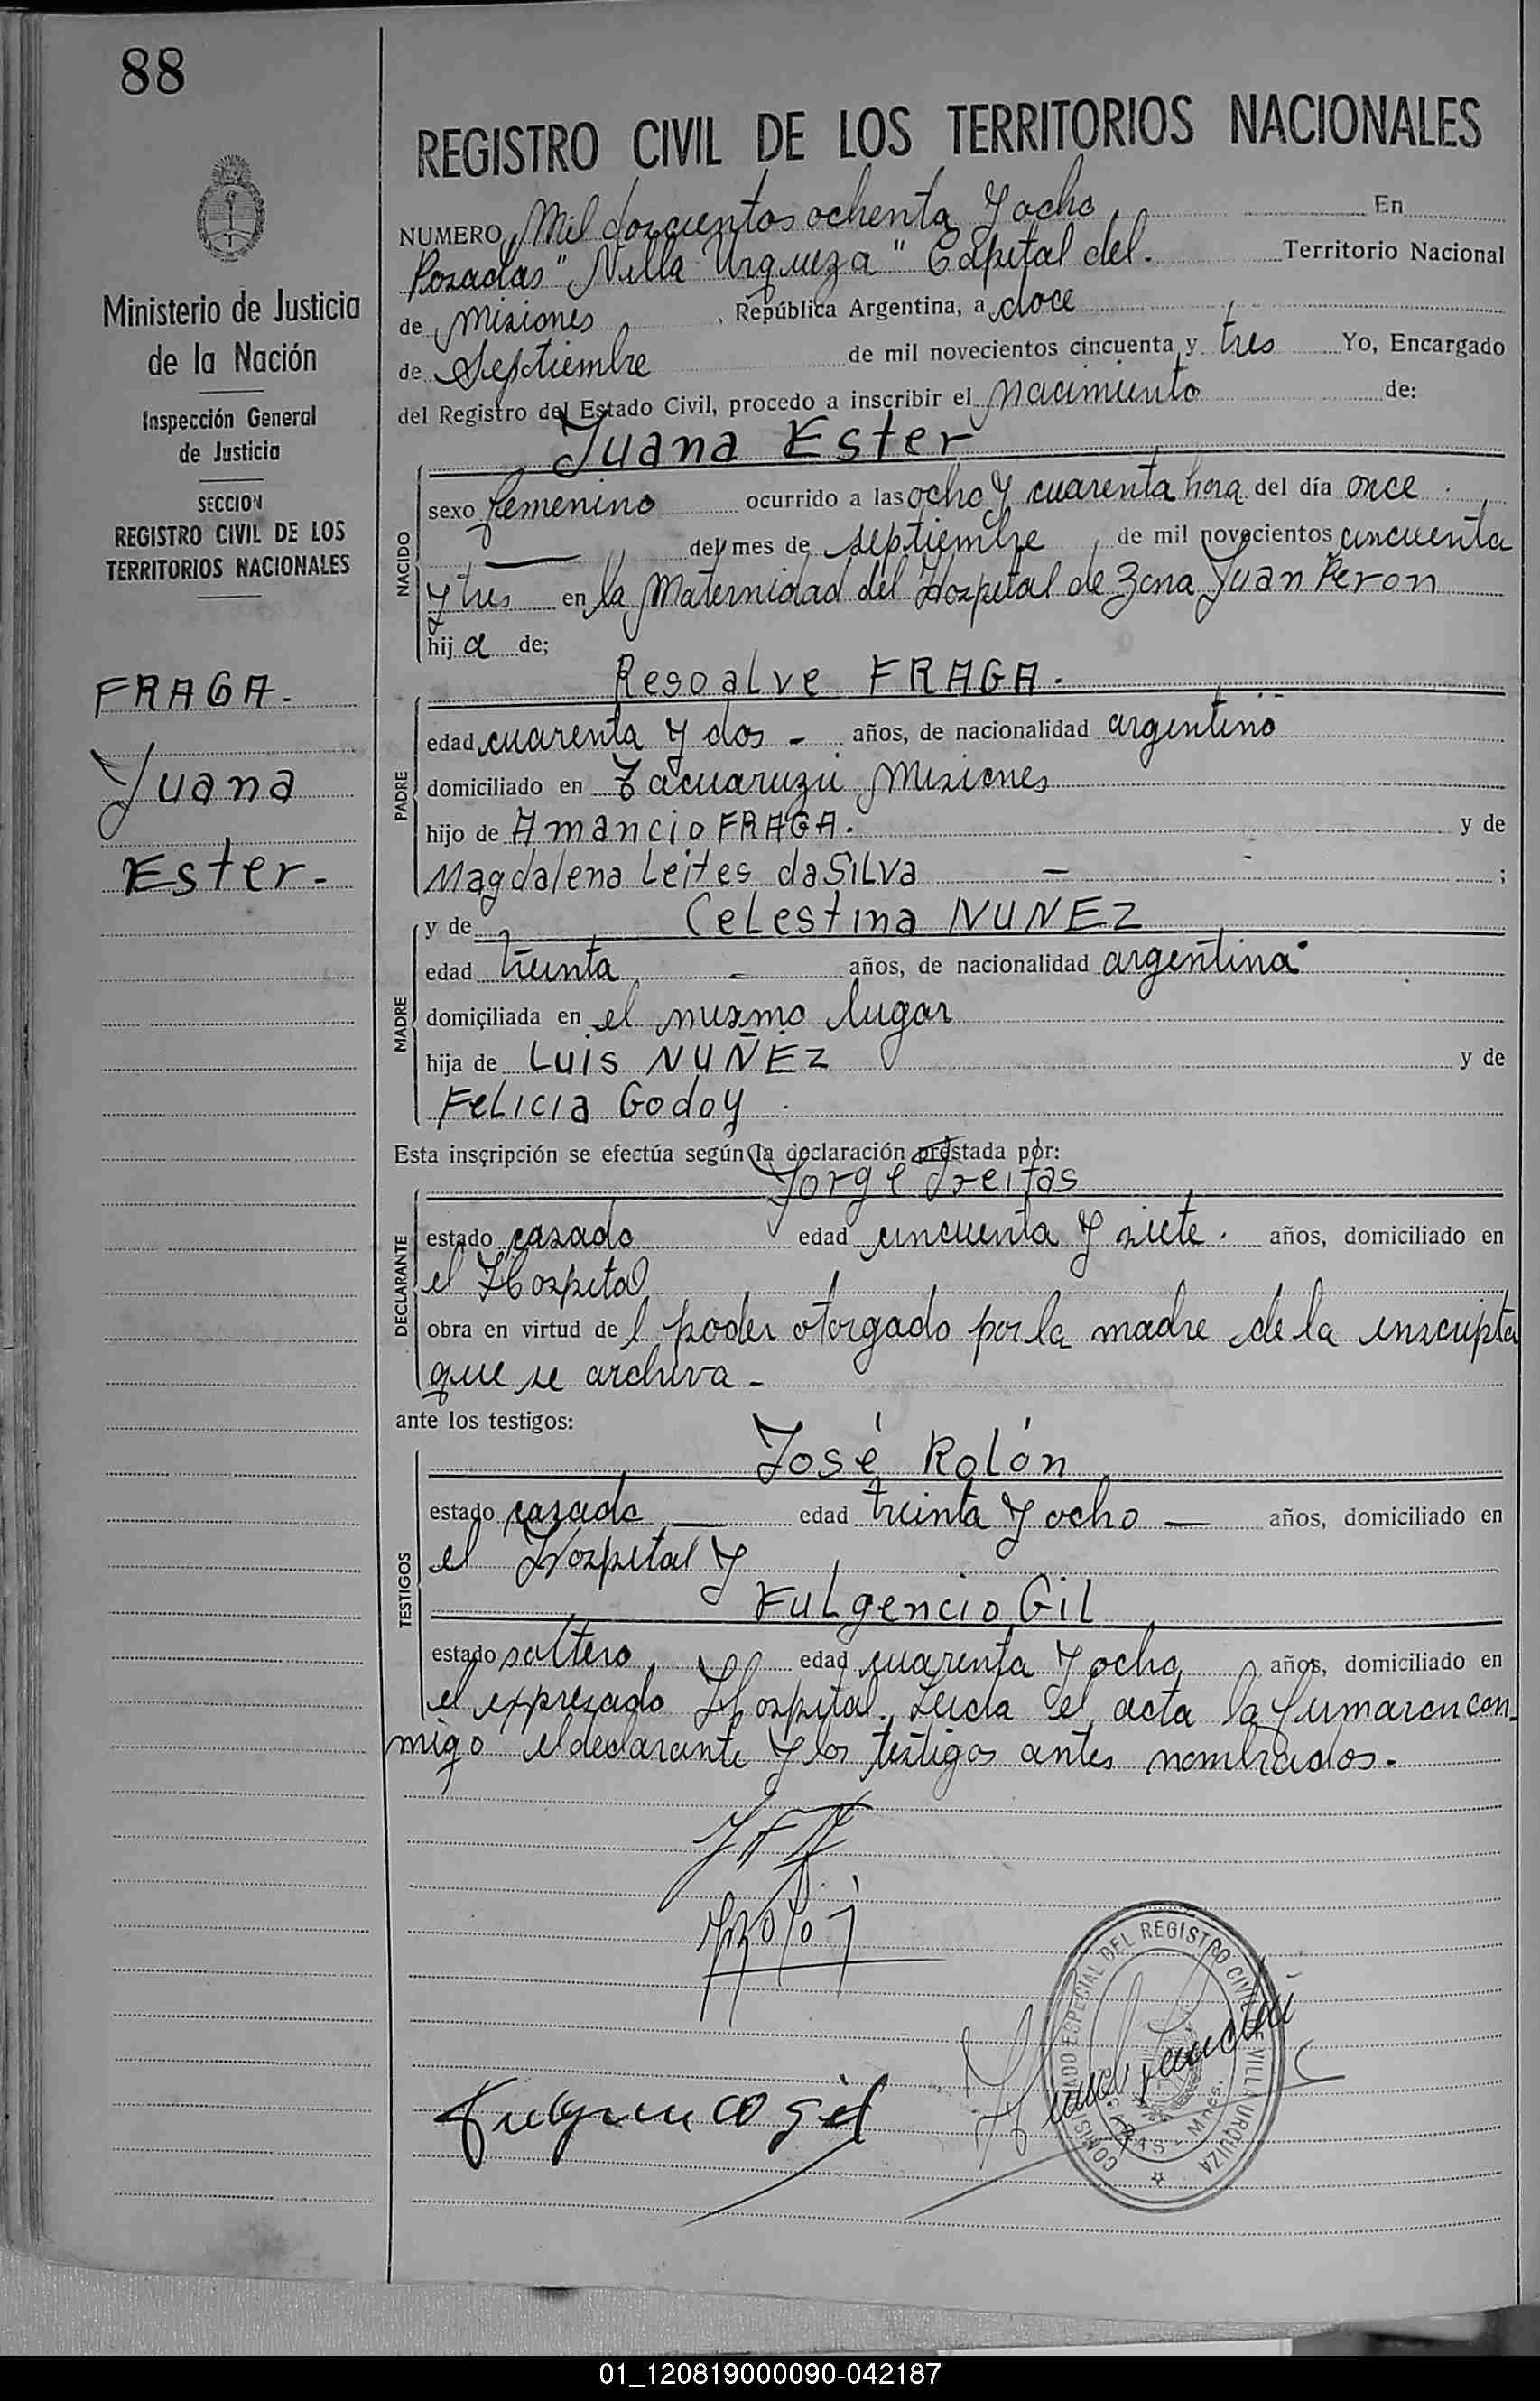 88
Ministerio de Justicia
de la Nación
Inspección General
de Justicia
SECCION
REGISTRO CIVIL DE LOS
TERRITORIOS NACIONALES
FRAGA.
Juana
Ester.
REGISTRO CIVIL DE LOS TERRITORIOS NACIONALES
NUMERO Mil doscientos ochenta y ocho En
Posadas "Villa Urquiza" Capital del. Territorio Nacional
de Misiones, República Argentina, a doce
de Septiembre de mil novecientos cincuenta y tres Yo, Encargado
del Registro del Estado Civil, procedo a inscribir el nacimiento de:
Juana Ester
NACIDO
sexo femenino ocurrido a las ocho y cuarenta hora del día once.
del mes de septiembre de mil novecientos cincuenta
y tres en la Maternidad del Hospital de Zona Juan Peron
hij a de;
Resoalve FRAGA.
PADRE
edad cuarenta y dos - años, de nacionalidad argentino
domiciliado en Tacuaruzú Misiones
hijo de Amancio FRAGA. y de
Magdalena Leites da SiLva - ;
y de Celestina NUNEZ
MADRE
edad treinta - años, de nacionalidad argentina
domiciliada en el mismo lugar
hija de Luis NUÑEZ y de
Felicia Godoy.
Esta inscripción se efectúa según la declaración prestada por:
Jorge Freitas
DECLARANTE
estado casado edad cincuenta y siete. años, domiciliado en
el Hospital
obra en virtud de l poder otorgado por la madre de la inscripta
que se archiva -
ante los testigos:
José Rolón
TESTIGOS
estado casado — edad treinta y ocho — años, domiciliado en
el Hospital y
Fulgencio Gil
estado soltero, edad cuarenta y ocho años, domiciliado en
el expresado Hospital. Leida el acta la firmaron con-
migo el declarante y los testigos antes nombrados.-
Fulgencio gil
COMISARIADO ESPECIAL DEL REGISTRO CIVIL DE VILLA URQUIZA
01_120819000090-042187